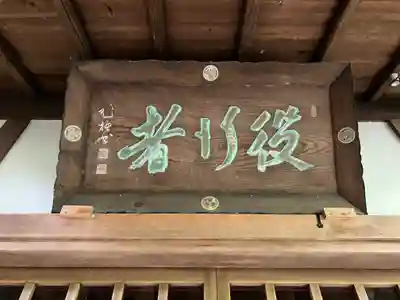 役行者